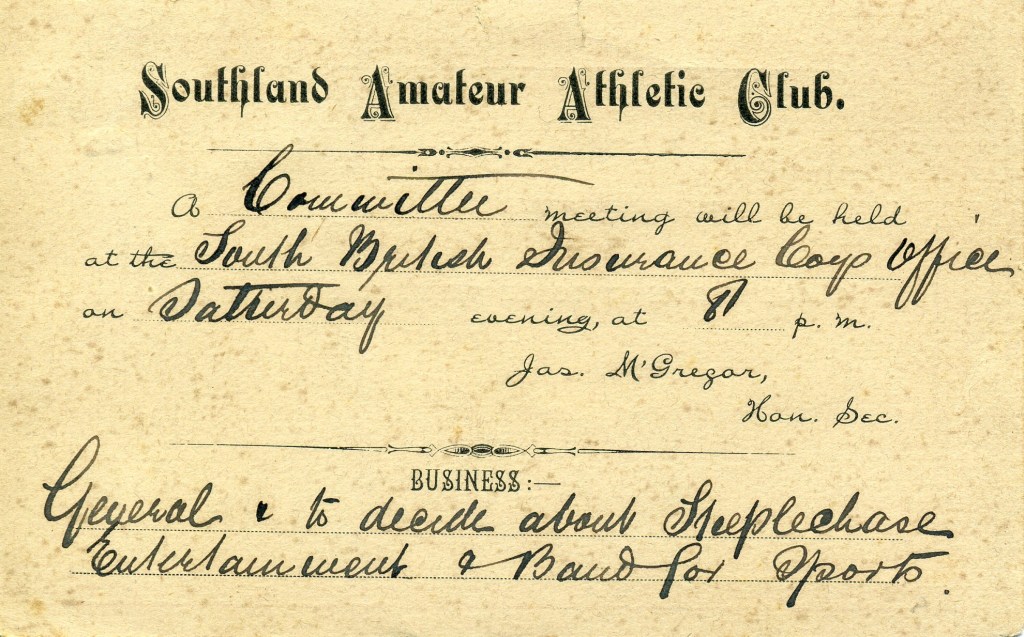 Southland Amateur Athletic Club.
A Committee meeting will be held
at the South British Insurance Coys Office
on Satterday evening, at 8 p. m.
Jas. M'Gregor,
Hon. Sec.
BUSINESS:—
General & to decide about Steeplechase
Entertainment & Band for Sports.